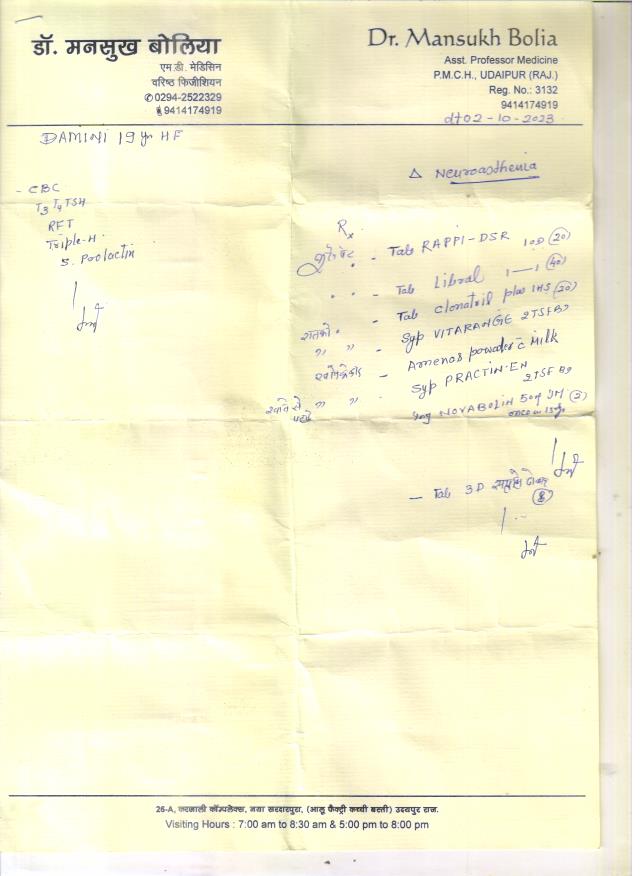 डॉ. मनसुख बोलिया
एम.डी. मेडिसिन
वरिष्ठ फिजीशियन
0294-2522329
9414174919
Dr. Mansukh Bolia
Asst. Professor Medicine
P.M.C.H., UDAIPUR (RAJ.)
Reg. No.: 3132
9414174919
dt 02-10-2023
DAMINI 19 yr HF
Δ Neuroasthenia
- CBC
T3 T4 TSH
RFT
Triple-H
S. Poolactin
Rx
- Tab RAPPI-DSR 1OD (20)
" " - Tab Libral 1—1 (40)
- Tab Clonatril plus 1HS (20)
" " - Syp VITARANGE 2TSFBD
- Amenos powder c̄ Milk
" " - Syp PRACTIN-EN 2TSFBD
Inj NOVABOLIN 50 IM (2)
once in 15
- Tab 3D (8)
26-A, करनाली कॉम्पलेक्स, नया सरदारपुरा, (आलू फैक्ट्री कच्ची बस्ती) उदयपुर राज.
Visiting Hours : 7:00 am to 8:30 am & 5:00 pm to 8:00 pm